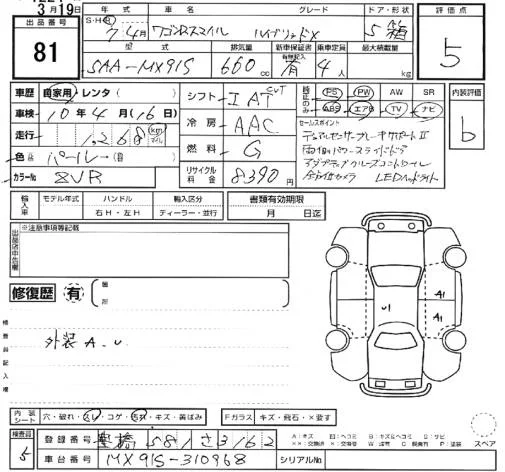 3月19日
出品番号
81
年式 車名 グレード ドア・形状
S・H・R 7年4月 ワゴンRスマイル ハイブリッドX 5 箱
型式 排気量 新車保証書 乗車定員 最大積載量
有無記入
5AA-MX91S 660cc 有 4人 kg
評価点
5
内装評価
b
車歴 自家用・レンタ( )
車検 10年4月(16日)
走行 1,268 km マイル
色 パール( )
カラーNo ZVR
シフト IAT CVT
冷房 AAC
燃料 G
リサイクル料金 8390円
PS PW AW SR
ABS エアB TV ナビ
セールスポイント
デュアルセンサーブレーキサポートII
両側パワースライドドア
アダプティブクルーズコントロール
全方位カメラ LEDヘッドライト
輸入車 モデル年式 ハンドル 輸入区分
右H・左H ディーラー・並行
書類有効期限
月 日迄
出品店申告欄
※注意事項等記載
修復歴 有
箇所
検査員記入欄
外装 A.U
U1
A1
A1
内装シート 穴・破れ・スレ・コゲ・汚れ・キズ・黄ばみ
Fガラス キズ・飛石・×要す
スペア
検査員
5
登録番号 豊橋 581 さ 3162
車台番号 MX91S-310968
シリアルNo